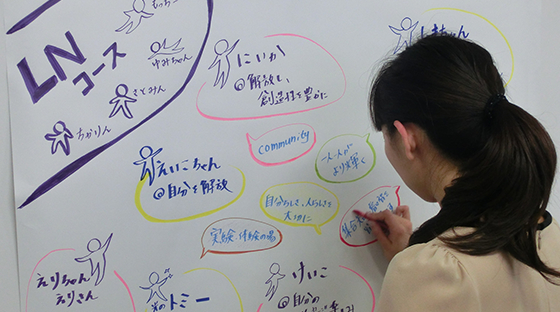 LN
コース
ゆみちゃん
さとみん
ちかりん
にいか
@解放し、
創造性を豊かに
community
一人一人が
より輝く
えいこちゃん
@自分を解放
自分らしさ、人らしさを
大切に
実験・体験の場
えりちゃん
えりさん
トミー
けいこ
@自分の